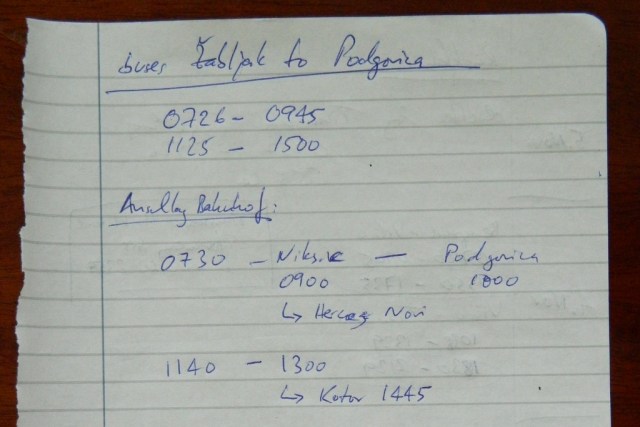 buses Žabljak to Podgorica
0726 - 0945
1125 - 1500
Bahnhof:
0730 - Niksic — Podgorica
0900 1000
↳ Herceg Novi
1140 - 1300
↳ Kotor 1445